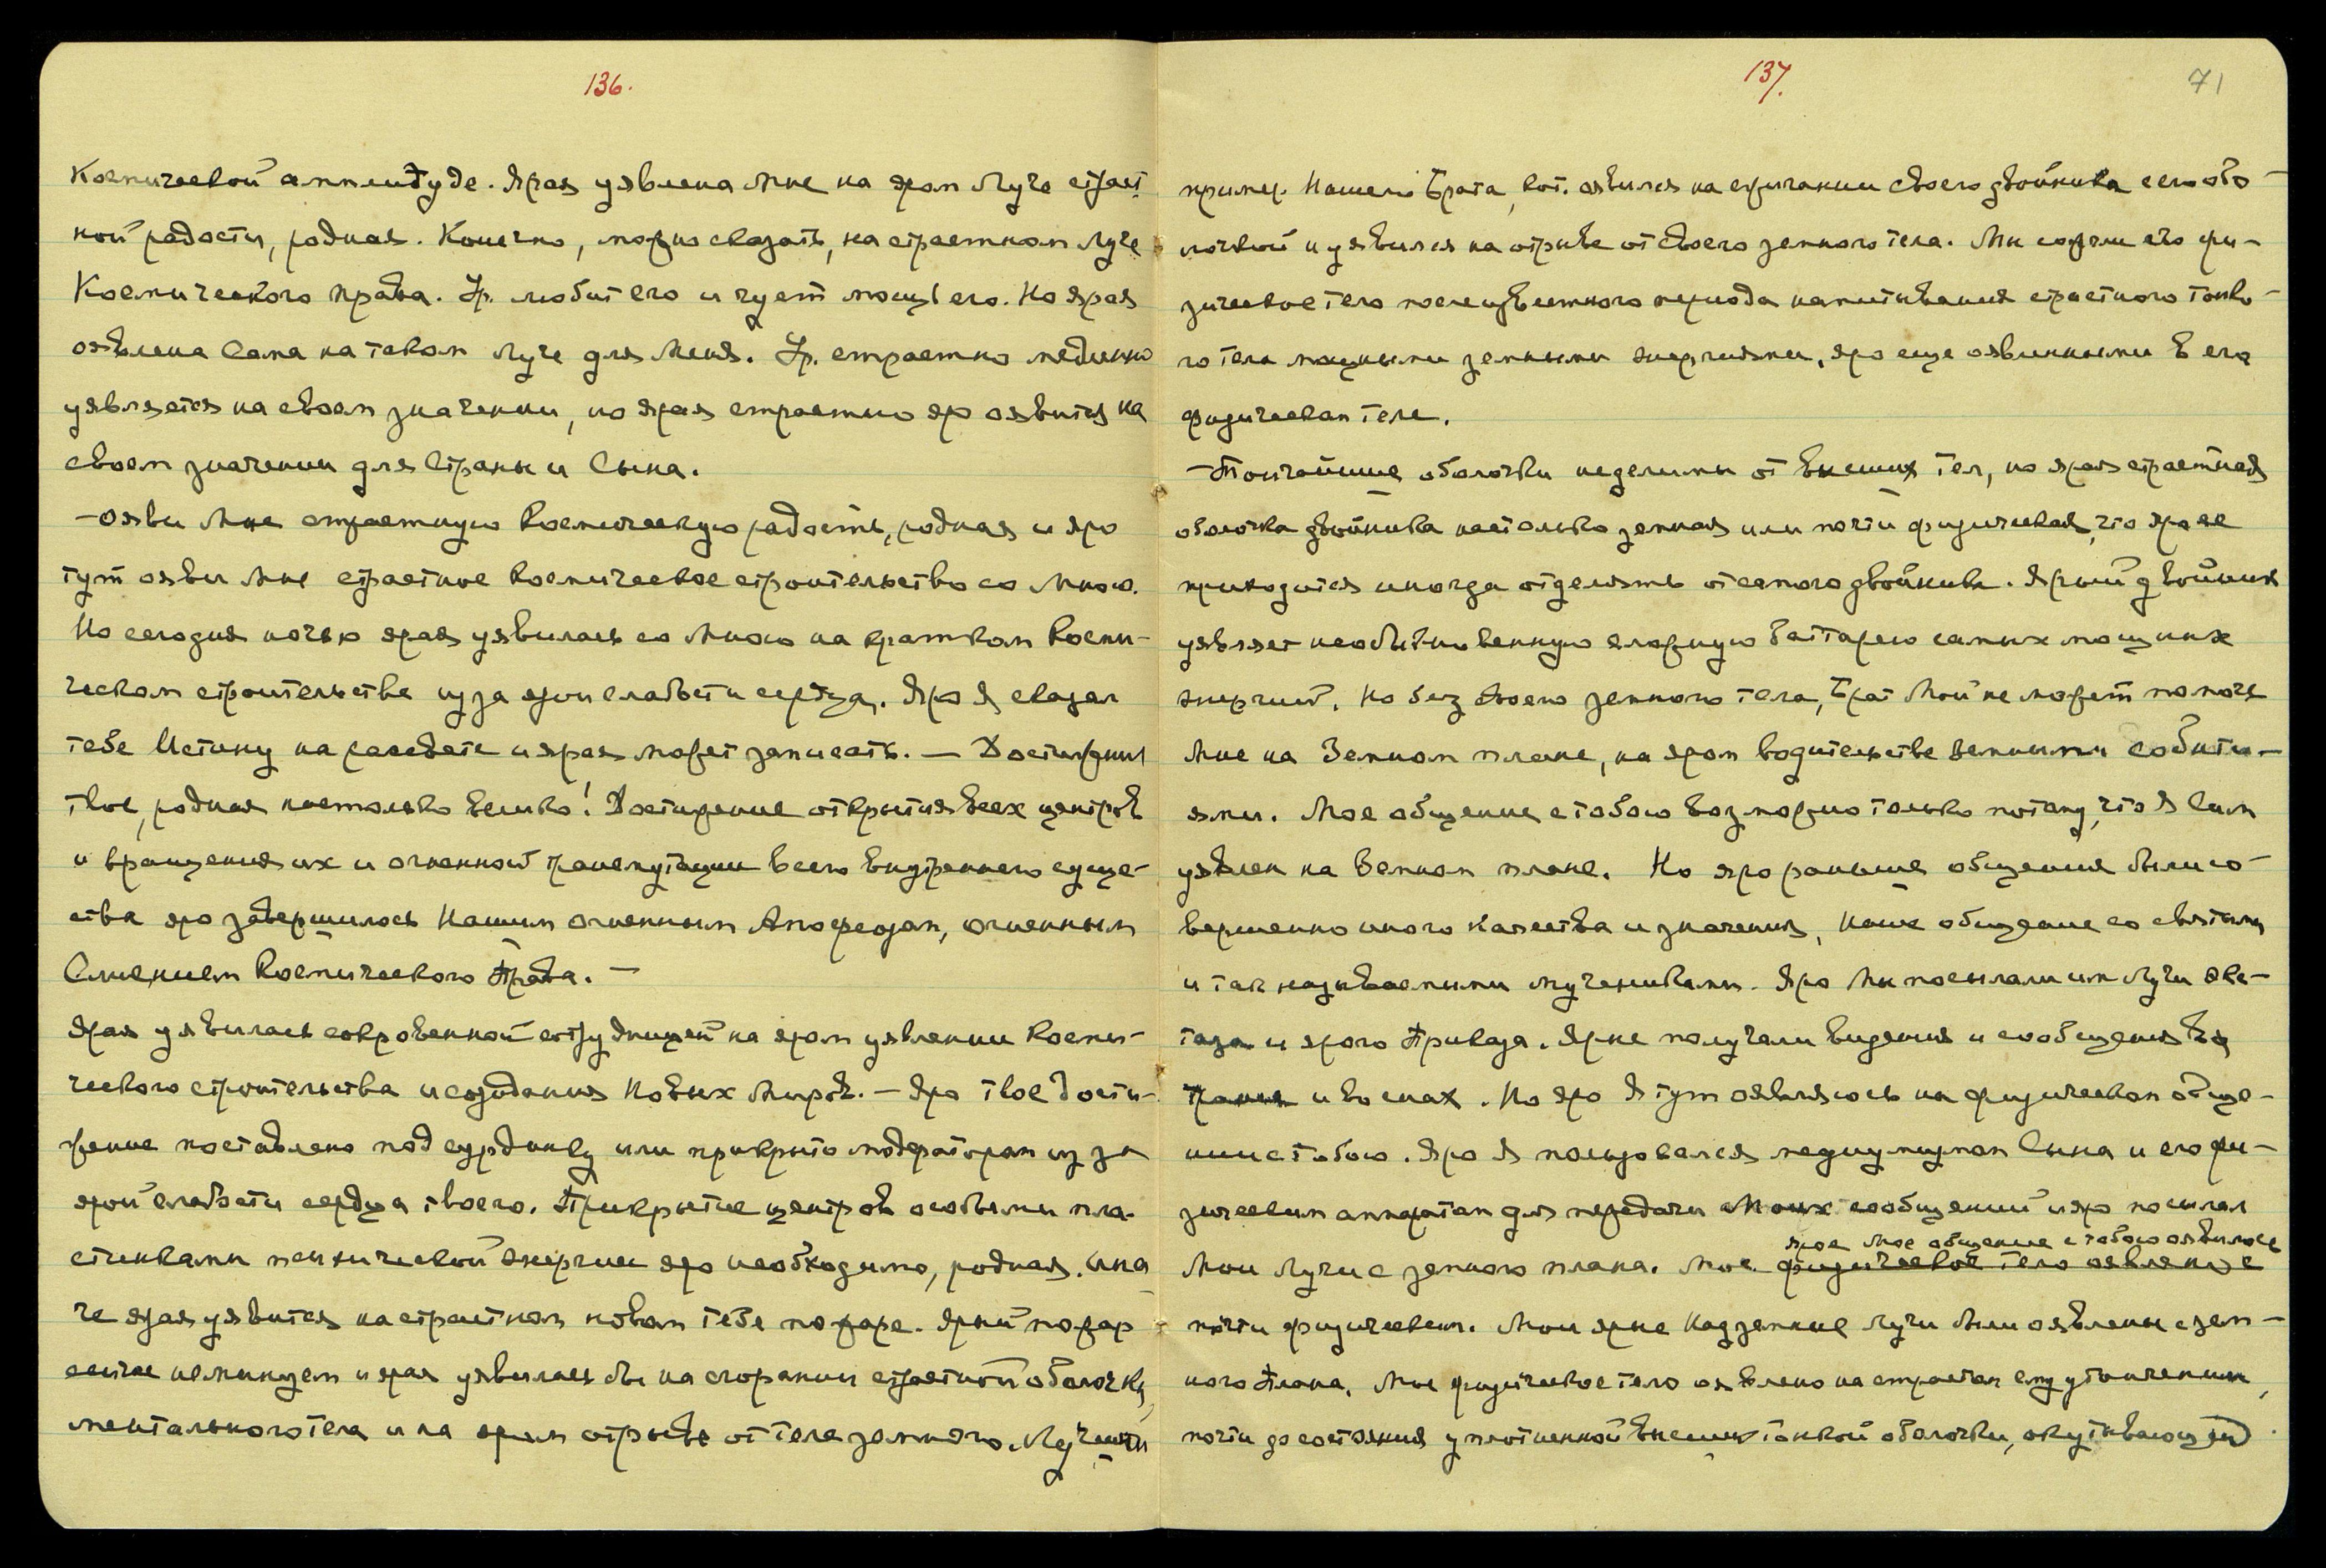 136.
Космической амплитуде. Ярая уявлена Мне на яром Луче страст-
ной радости, родная. Конечно, можно сказать, на страстном Луче
Космического права. Ур. любит его и чует мощь его. Но ярая
оявлена Сама на таком Луче для Меня. Ур. страстно медленно
уявляется на своем значении, но ярая страстно яро оявится на
своем значении для Страны и Сына.
— Ояви Мне страстную космическую радость, родная и яро
тут ояви Мне страстное космическое строительство со Мною.
Но сегодня ночью ярая уявилась со Мною на кратком косми-
ческом строительстве из за ярой слабости сердца. Яро Я сказал
тебе Истину на рассвете и ярая может записать. — Достижение
твое, родная настолько велико! Достижение открытия всех центров
и вращения их и огненной трансмутации всего внутреннего суще-
ства яро завершилось Нашим огненным Апофеозом, огненным
Слиянием Космического Права. —
Ярая уявилась сокровенной сотрудницей на яром уявлении Косми-
ческого строительства и создания Новых Миров. — Яро твое дости-
жение поставлено под сурдинку или прикрыто модератором из за
ярой слабости сердца твоего. Прикрытие центров особыми пла-
стинками психической энергии яро необходимо, родная. Ина-
че ярая уявится на страстном новом тебе пожаре. Ярый пожар
сейчас неминуем и ярая уявилась бы на сгорании страстной оболочки
ментального тела и на яром отрыве от тела земного. Лучший
137.
71
пример Нашего Брата, кот. оявился на сжигании своего двойника с его обо-
лочкой и уявился на отрыве от своего земного тела. Мы создали его фи-
зическое тело после известного периода напитывания страстного тонко-
го тела мощными земными энергиями, яро еще оявленными в его
физическом теле.
— Тончайшие оболочки неделимы от высших тел, но ярая страстная
оболочка двойника настолько земная или почти физическая, что яро ее
приходится иногда отделять от самого двойника. Ярый двойник
уявляет необыкновенную сложную баттарею самых мощных
энергий. Но без своего земного тела, Брат Мой не может помочь
Мне на Земном плане, на яром водительстве земными событи-
ями. Мое общение с тобою возможно только потому, что Я Сам
уявлен на Земном плане. Но яро раньше общения были со-
вершенно иного качества и значения, наше общение со святыми
и так называемыми мучениками. Яро Мы посылали им Лучи Экс-
таза и ярого Приказа. Яркие получали видения и сообщения
и во снах. Но яро Я тут оявляюсь на физическом обще-
нии с тобою. Яро Я пользовался медиумизмом Сына и его фи-
зическим аппаратом для передачи Моих сообщений и яро посылал
ярое Мое общение с тобою оявилось
Мои Лучи с земного плана. Мое физическое тело оявлянное
почти физическим. Мои яркие Надземные Лучи были оявлены с зем-
ного Плана. Мое физическое тело оявлено на страстном ему утончении,
почти до состояния уплотненной внешне тонкой оболочки, окутывающей